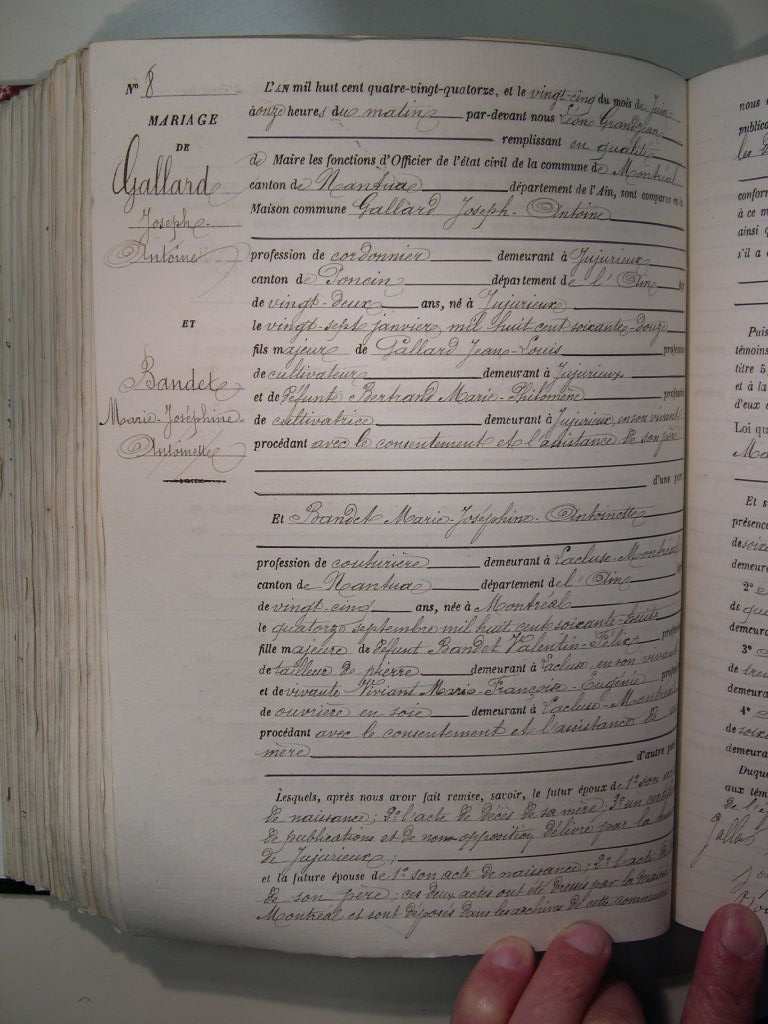 N° 8
MARIAGE
DE
Gallard
Joseph
Antoine
ET
Bandet
Marie-Joséphine
Antoinette
L'AN mil huit cent quatre-vingt-quatorze, et le vingt-cinq du mois de Juin
à onze heures du matin par-devant nous Léon Grandjean
remplissant en qualité
de Maire les fonctions d'Officier de l'état civil de la commune de Montréal
canton de Nantua département de l'Ain, sont comparus en la
Maison commune Gallard Joseph-Antoine
profession de cordonnier demeurant à Jujurieux
canton de Poncin département de l'Ain
de vingt-deux ans, né à Jujurieux
le vingt-sept janvier mil huit cent soixante-douze
fils majeur de Gallard Jean-Louis profession
de cultivateur demeurant à Jujurieux
et de défunte Bertrand Marie-Philomène profession
de cultivatrice demeurant à Jujurieux, en son vivant
procédant avec le consentement et l'assistance de son père
d'une part
Et Bandet Marie-Joséphine-Antoinette
profession de couturière demeurant à Lacluse-Montréal
canton de Nantua département de l'Ain
de vingt-cinq ans, née à Montréal
le quatorze septembre mil huit cent soixante-huit
fille majeure de défunt Bandet Valentin-Félix
de tailleur de pierre demeurant à Lacluse, en son vivant
et de vivante Viviant Marie-Françoise-Eugénie
de ouvrière en soie demeurant à Lacluse-Montréal
procédant avec le consentement et l'assistance de sa
mère
d'autre part
Lesquels, après nous avoir fait remise, savoir, le futur époux de 1° son acte
de naissance; 2° l'acte de décès de sa mère; 3° un certificat
de publications et de non opposition délivré par la mairie
de Jujurieux;
et la future épouse de 1° son acte de naissance; 2° l'acte de
de son père; ces deux actes ont été dressés par la mairie
Montréal et sont déposés dans les archives de cette commune
nous
publica
les
confor
à ce m
ainsi q
s'il a
Puis
témoins
titre 5
et à la
d'eux
Loi qu
Et s
présence
de soix
demeura
2°
de qua
demeura
3°
de tren
demeura
4°
de soix
demeura
Duque
aux tém
de l'é
Galla